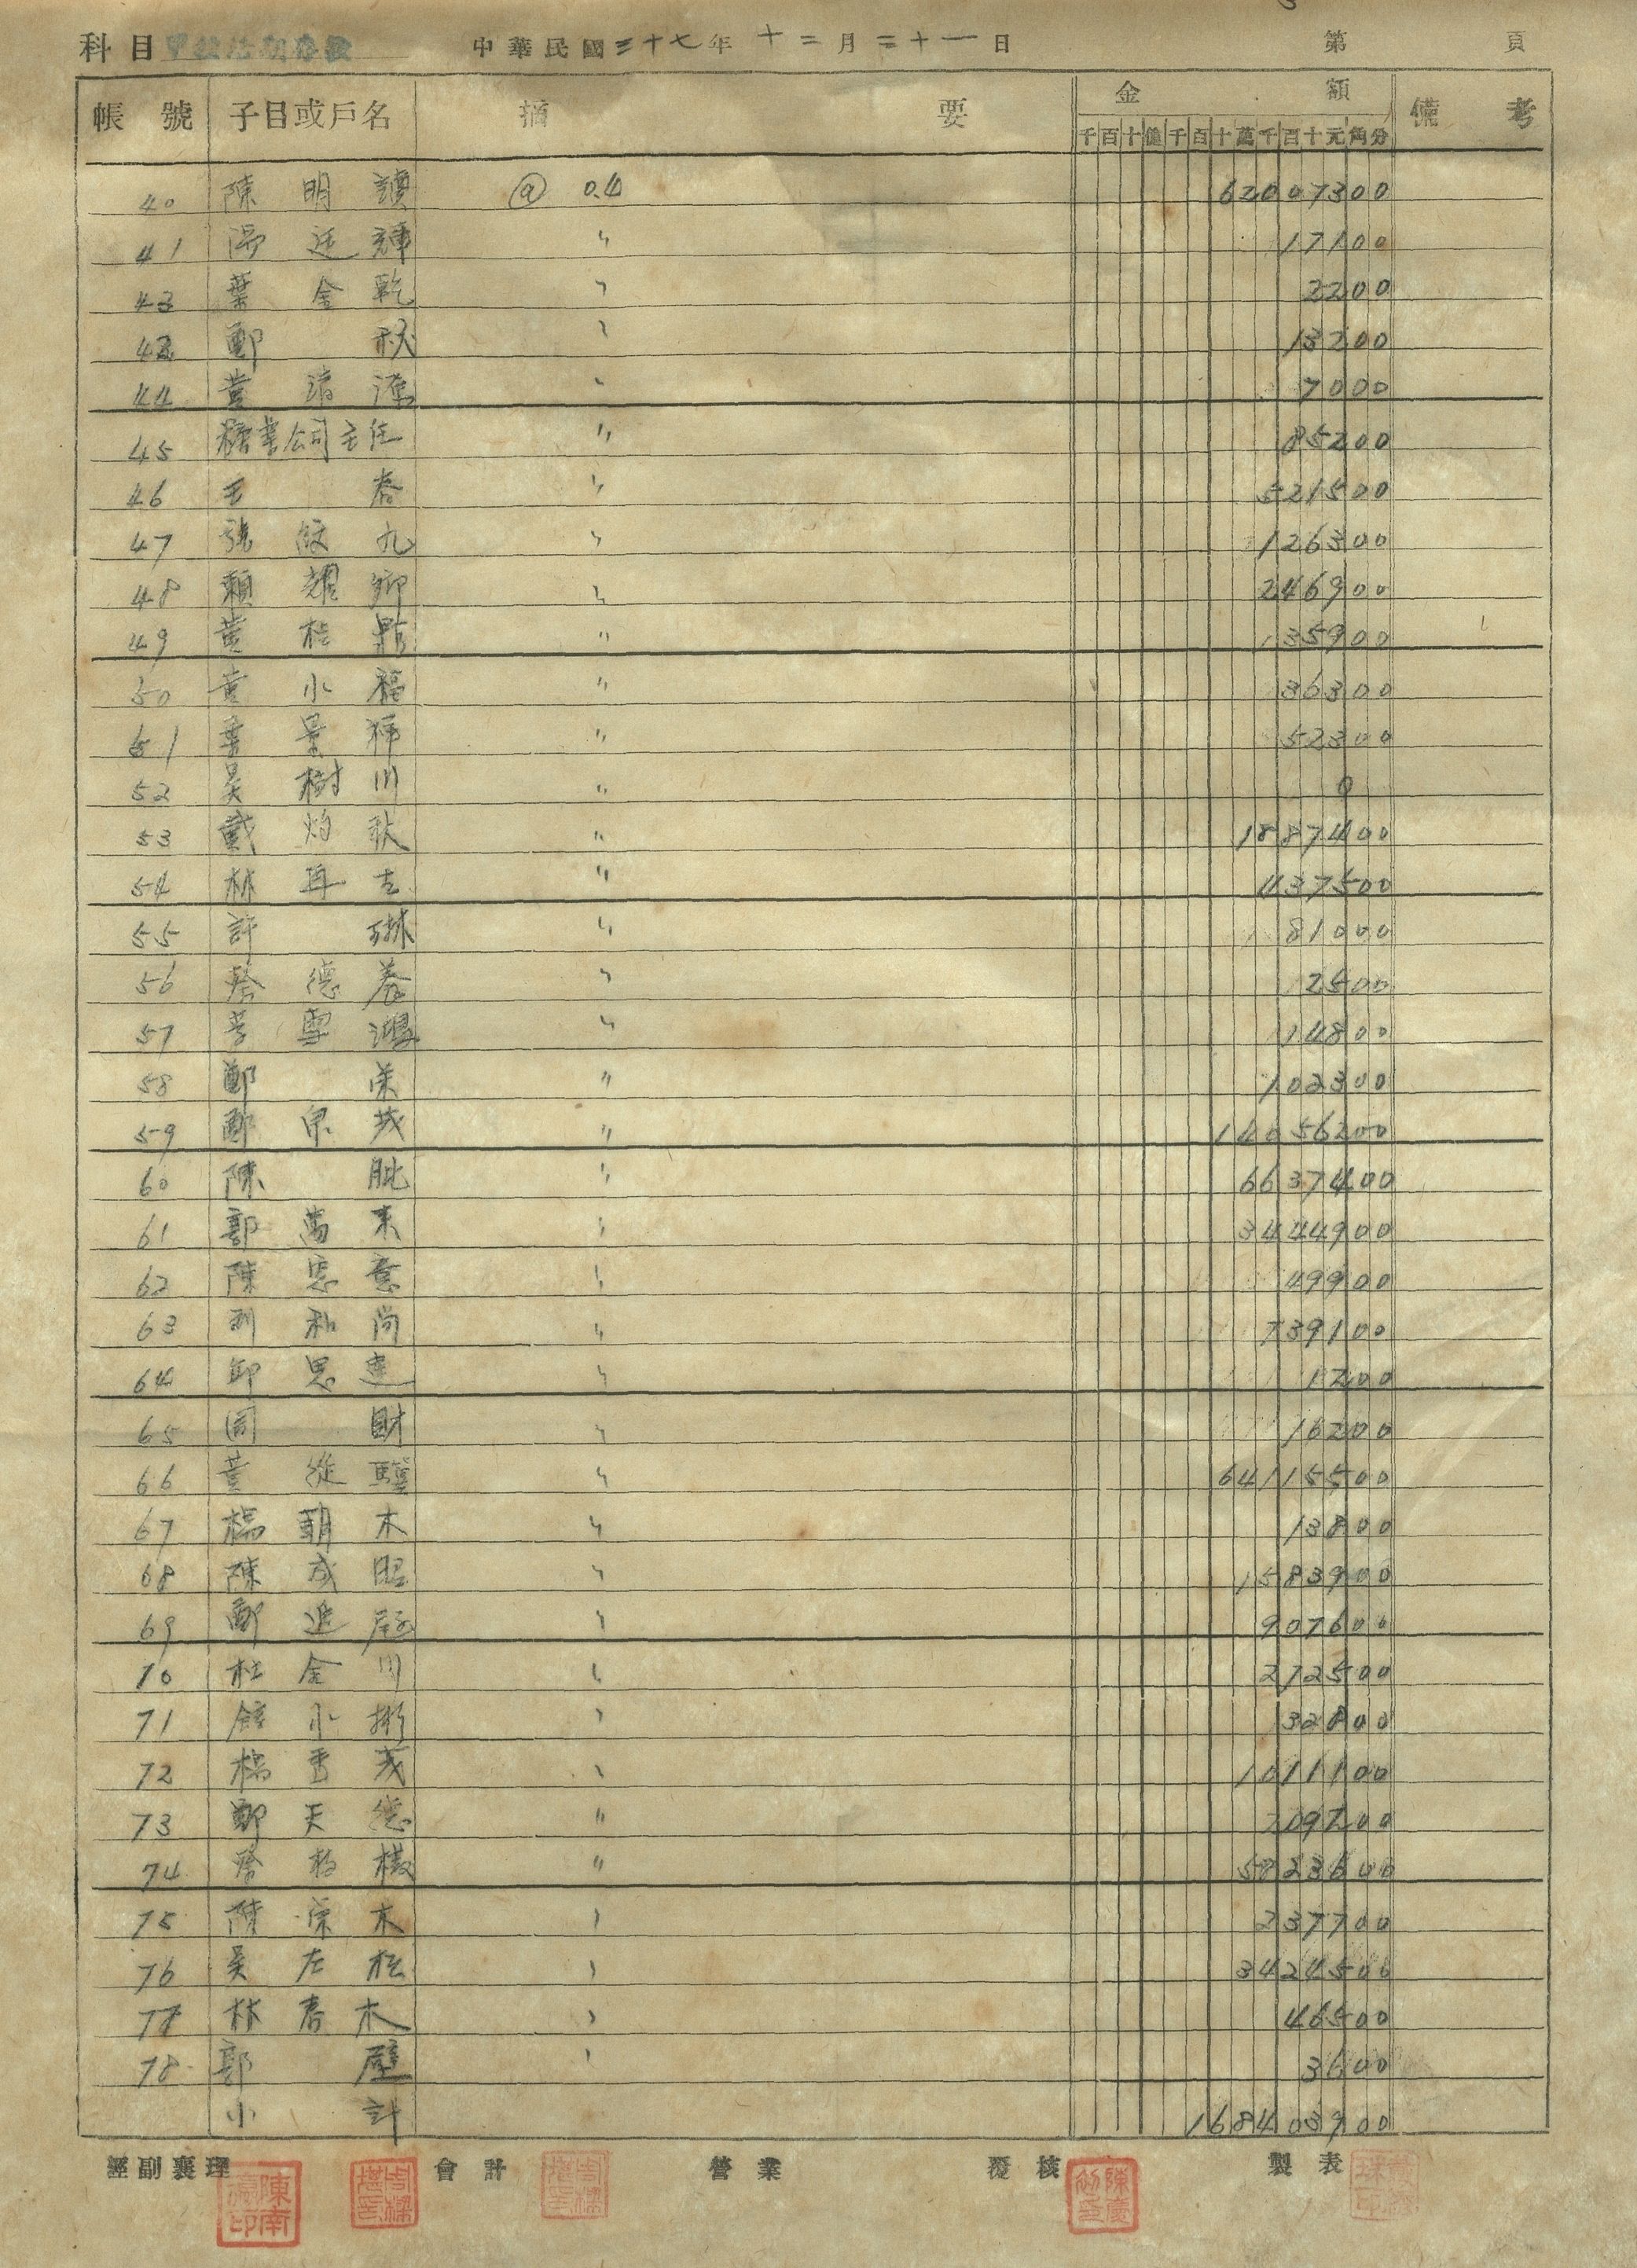 科目 甲種活期存款 中華民國三十七年十二月三十一日 第 頁
帳號 子目或戶名 摘要 金額 備考
千百十億千百十萬千百十元角分
40 陳明 @ 0.4 62007300
41 湯廷輝 〃 17100
43 葉金乾 〃 2200
42 鄭秋 〃 13200
44 黃清 〃 7000
45 糖業公司主任 〃 85200
46 王春 〃 521500
47 張 九 〃 126300
48 賴耀卿 〃 246900
49 黃桂鼎 〃 135900
50 黃水福 〃 36300
51 葉景 〃 52300
52 吳樹川 〃 0
53 戴灼 〃 1887400
54 林再 〃 437500
55 許琳 〃 81000
56 蔡德春 〃 2500
57 李雪鴻 〃 14800
58 鄭榮 〃 102300
59 鄭泉茂 〃 14056200
60 陳 〃 6637400
61 郭萬來 〃 3444900
62 陳 意 〃 49900
63 劉和尚 〃 739100
64 邱思達 〃 1200
65 周財 〃 16200
66 黃從 〃 64115500
67 楊朝木 〃 13800
68 陳成昭 〃 1583900
69 鄭進 〃 907600
70 杜金川 〃 272500
71 鍾水 〃 32800
72 楊 茂 〃 1011100
73 鄭天德 〃 209200
74 蔡 〃 5823600
75 陳榮木 〃 237700
76 吳左松 〃 3424500
77 林春木 〃 46500
78 郭壁 〃 3600
小計 168403900
經副襄理 會計 營業 覆核 製表